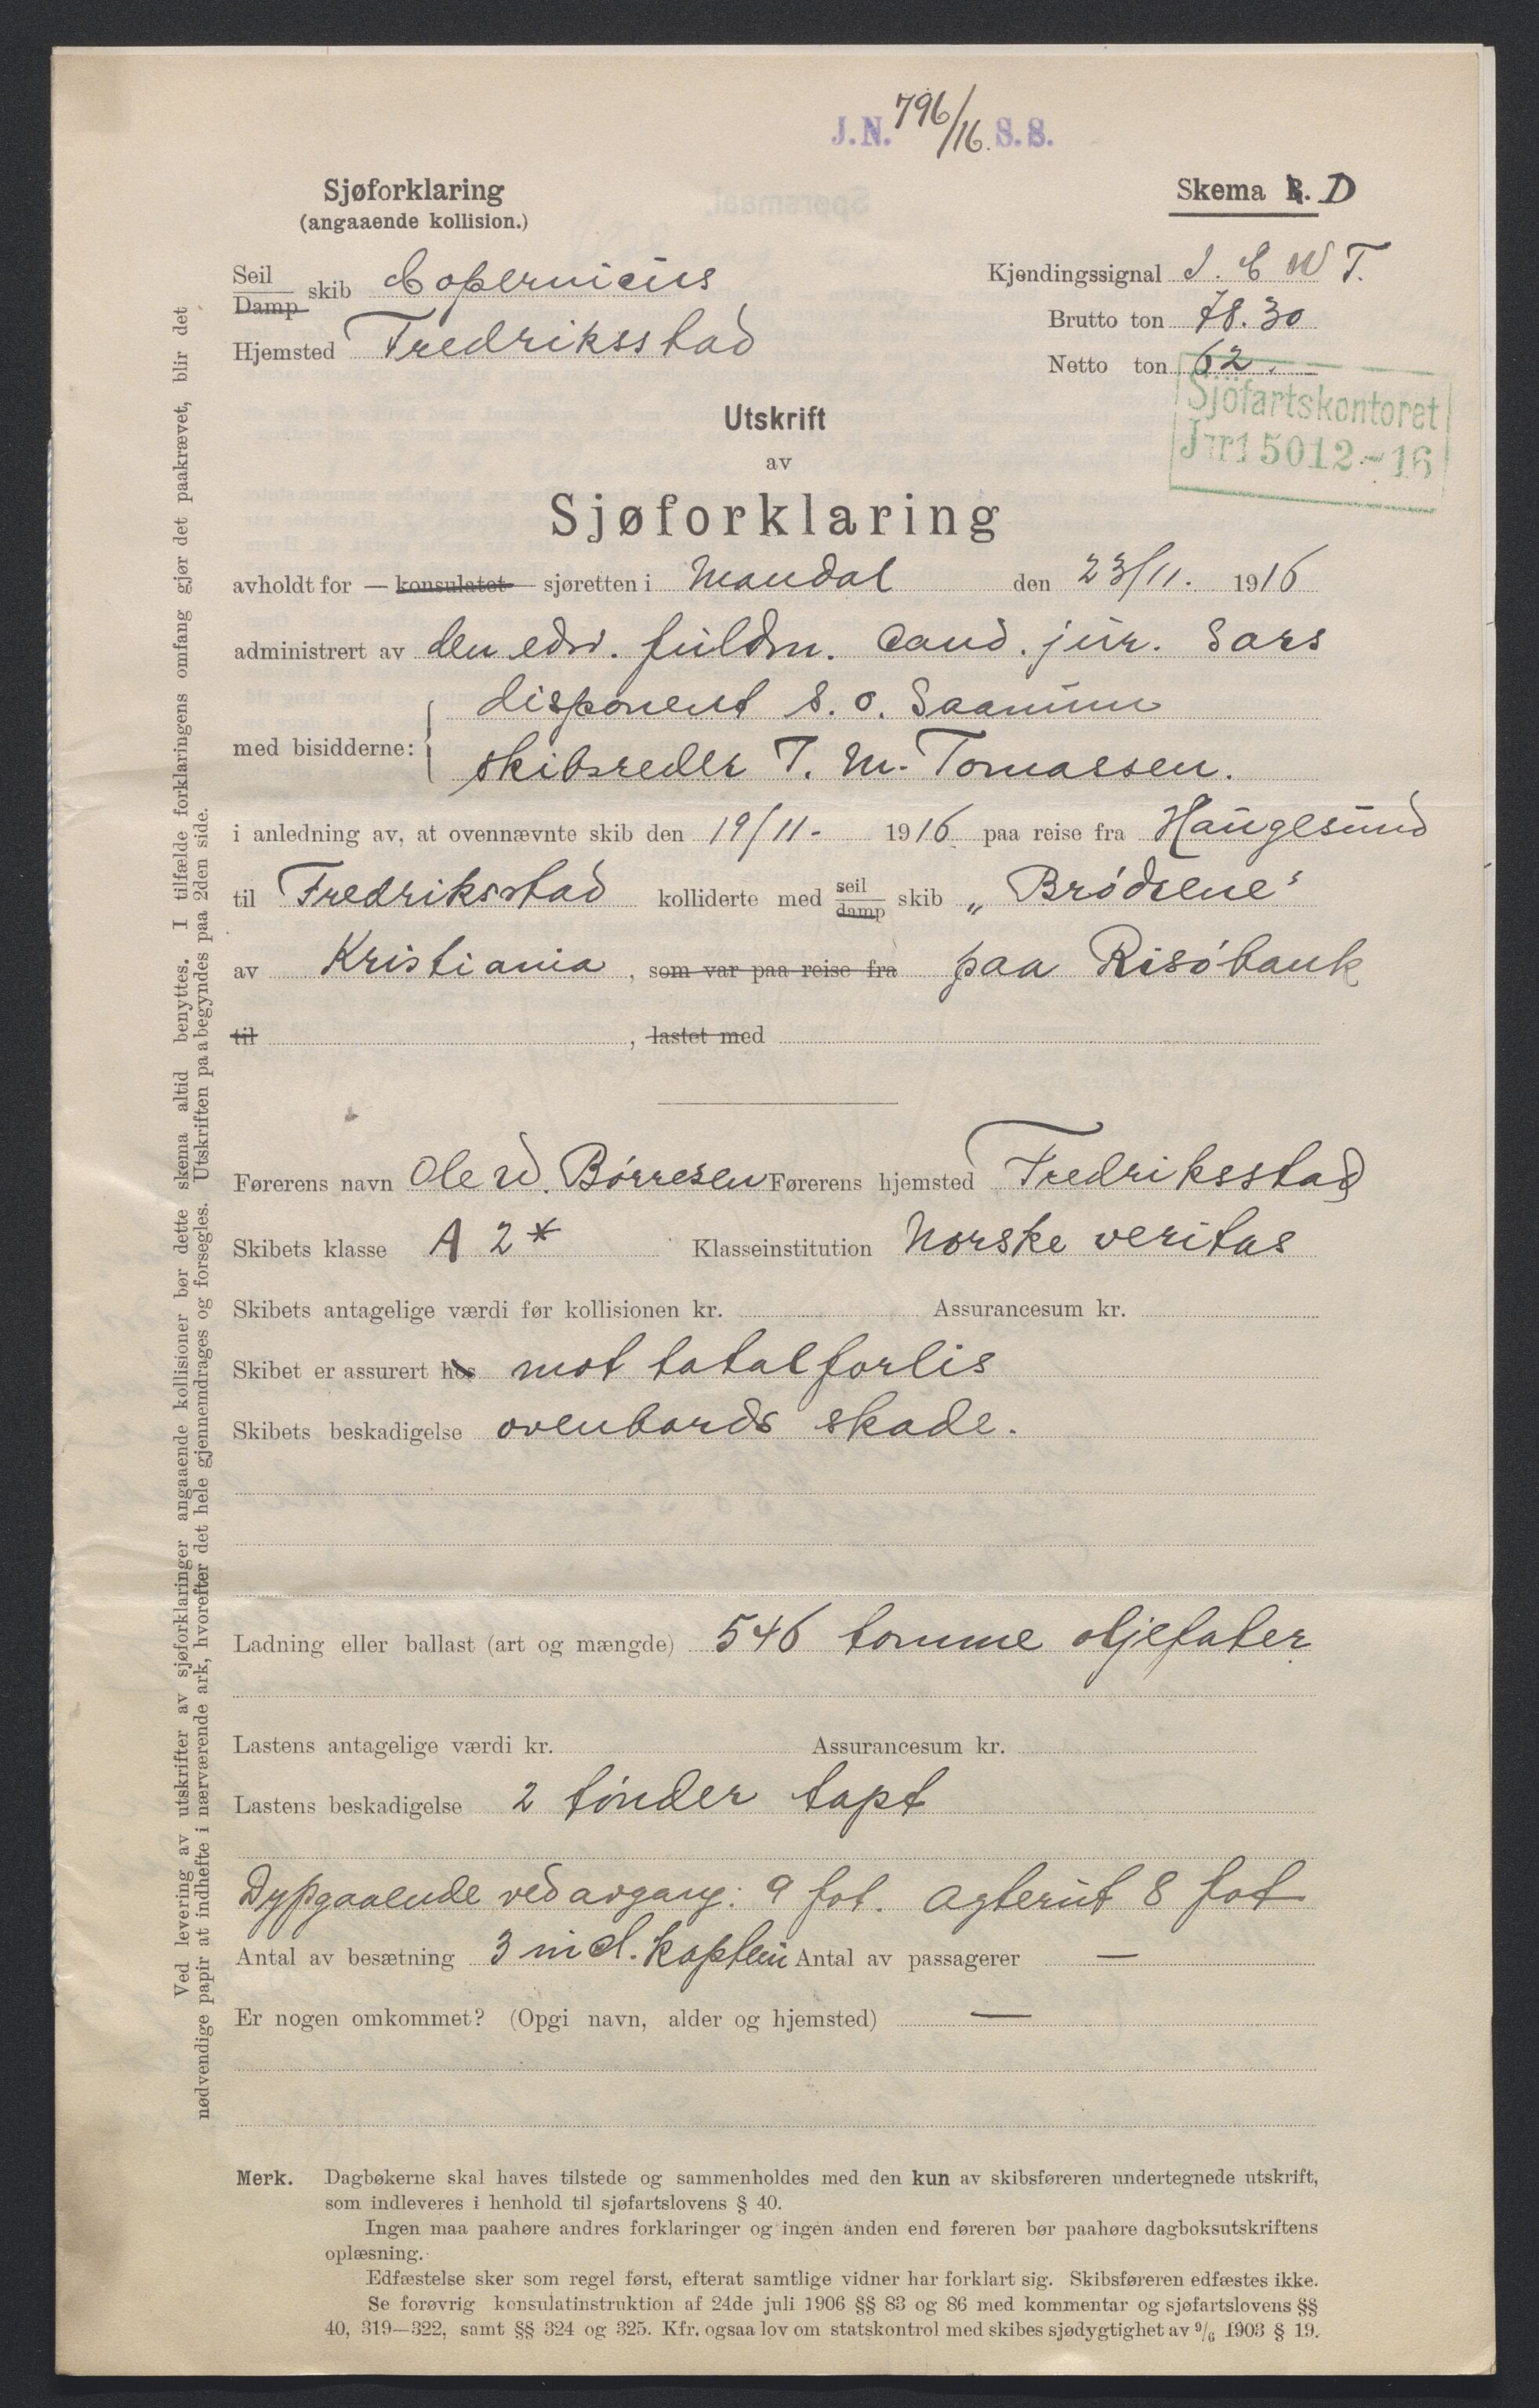 J.N. 796/16. S.S.
Sjøforklaring
(angaaende kollision.)
Skema B. D
Seil
Damp
skib Copernicus
Kjendingssignal J. C W T.
Brutto ton 78.30
Hjemsted Fredriksstad
Netto ton 62.
Sjöfartskontoret
Jnr 15012 - 16
Utskrift
av
Sjøforklaring
avholdt for — konsulatet — sjøretten i Mandal den 23/11. 1916
administrert av den edsv. fuldm. Cand. jur. Sars
med bisidderne:
disponent S. O. Saanum
skibsreder T. M. Tomassen.
i anledning av, at ovennævnte skib den 19/11- 1916 paa reise fra Haugesund
til Fredriksstad kolliderte med seil damp skib „Brødrene"
av Kristiania, som var paa reise fra paa Risøbank
til , lastet med
Førerens navn Ole W. Børresen Førerens hjemsted Fredriksstad
Skibets klasse A 2* Klasseinstitution Norske veritas
Skibets antagelige værdi før kollisionen kr. Assurancesum kr.
Skibet er assurert hos mot totalforlis
Skibets beskadigelse ovenbords skade.
Ladning eller ballast (art og mængde) 546 tomme oljefater
Lastens antagelige værdi kr. Assurancesum kr.
Lastens beskadigelse 2 tønder tapt
Dypgaaende ved avgang: 9 fot. Agterut 8 fot
Antal av besætning 3 incl. kaptein Antal av passagerer —
Er nogen omkommet? (Opgi navn, alder og hjemsted) —
Merk. Dagbøkerne skal haves tilstede og sammenholdes med den kun av skibsføreren undertegnede utskrift,
som indleveres i henhold til sjøfartslovens § 40.
Ingen maa paahøre andres forklaringer og ingen anden end føreren bør paahøre dagboksutskriftens
oplæsning.
Edfæstelse sker som regel først, efterat samtlige vidner har forklart sig. Skibsføreren edfæstes ikke.
Se forøvrig konsulatinstruktion af 24de juli 1906 §§ 83 og 86 med kommentar og sjøfartslovens §§
40, 319—322, samt §§ 324 og 325. Kfr. ogsaa lov om statskontrol med skibes sjødygtighet av 9/6 1903 § 19.
Ved levering av utskrifter av sjøforklaringer angaaende kollisioner bør dette skema altid benyttes. I tilfælde forklaringens omfang gjør det paakrævet, blir det
nødvendige papir at indhefte i nærværende ark, hvorefter det hele gjennemdrages og forsegles. Utskriften paabegyndes paa 2den side.